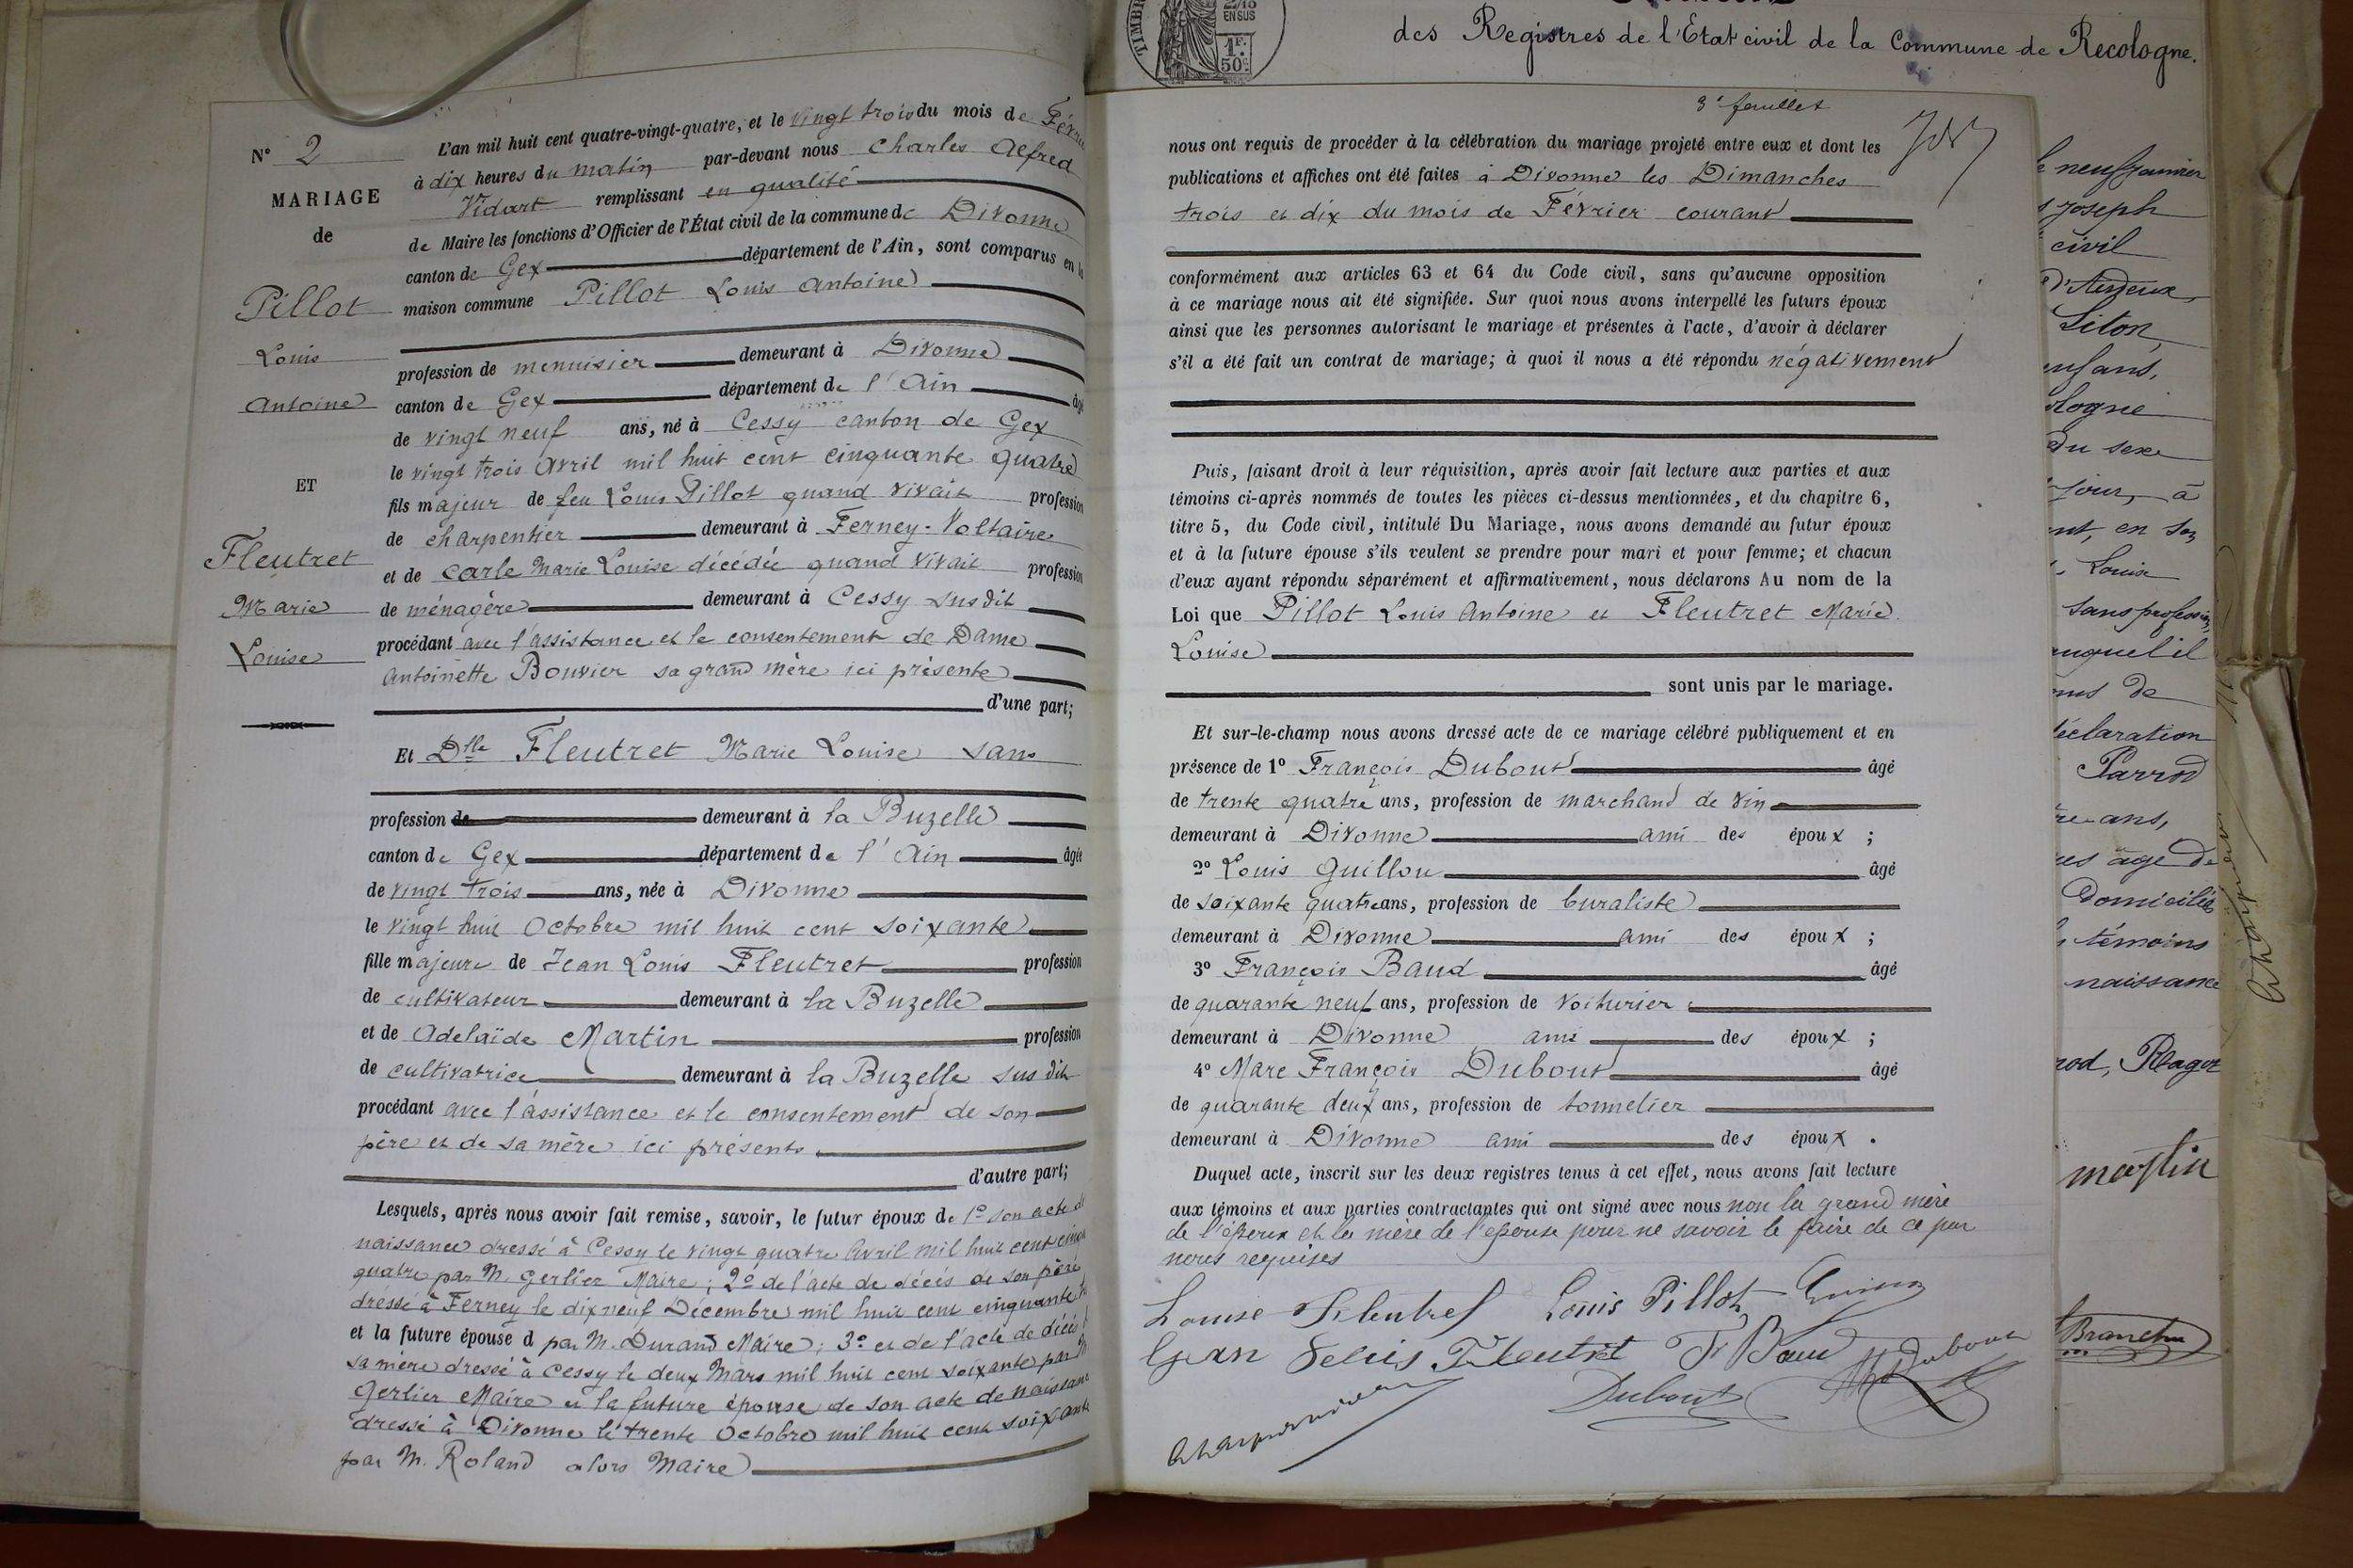 N° 2
MARIAGE
de
Pillot
Louis
Antoine
ET
Fleutret
Marie
Louise
L'an mil huit cent quatre-vingt-quatre, et le vingt trois du mois de Février
à dix heures du matin par-devant nous Charles Alfred
Vidart remplissant en qualité
de Maire les fonctions d'Officier de l'État civil de la commune de Divonne
canton de Gex département de l'Ain, sont comparus en la
maison commune Pillot Louis Antoine
profession de menuisier demeurant à Divonne
canton de Gex département de l'Ain âgé
de vingt neuf ans, né à Cessy canton de Gex
le vingt trois Avril mil huit cent cinquante quatre
fils majeur de feu Louis Pillot quand vivait profession
de charpentier demeurant à Ferney-Voltaire
et de Carle Marie Louise décédée quand vivait profession
de ménagère demeurant à Cessy sus dit
procédant avec l'assistance et le consentement de Dame
Antoinette Bouvier sa grand mère ici présente
d'une part;
Et Dlle Fleutret Marie Louise sans
profession de demeurant à la Buzelle
canton de Gex département de l'Ain âgée
de vingt trois ans, née à Divonne
le vingt huit Octobre mil huit cent soixante
fille majeure de Jean Louis Fleutret profession
de cultivateur demeurant à la Buzelle
et de Adelaïde Martin profession
de cultivatrice demeurant à la Buzelle sus dit
procédant avec l'assistance et le consentement de son
père et de sa mère ici présents
d'autre part;
Lesquels, après nous avoir fait remise, savoir, le futur époux de 1° son acte de
naissance dressé à Cessy le vingt quatre Avril mil huit cent cinqu
quatre par M. Gerlier Maire; 2° de l'acte de décès de son père
dressé à Ferney le dix neuf Décembre mil huit cent cinquante
et la future épouse d par M. Durand Maire; 3° et de l'acte de décès
sa mère dressé à Cessy le deux Mars mil huit cent soixante par M
Gerlier Maire et la future épouse de son acte de naissan
dressé à Divonne le trente Octobre mil huit cent soixante
par M. Roland alors Maire
TIMBRE
EN SUS
1F.
50c.
des Registres de l'Etat civil de la Commune de Recologne.
3e feuillet
nous ont requis de procéder à la célébration du mariage projeté entre eux et dont les
publications et affiches ont été faites à Divonne les Dimanches
trois et dix du mois de Février courant
conformément aux articles 63 et 64 du Code civil, sans qu'aucune opposition
à ce mariage nous ait été signifiée. Sur quoi nous avons interpellé les futurs époux
ainsi que les personnes autorisant le mariage et présentes à l'acte, d'avoir à déclarer
s'il a été fait un contrat de mariage; à quoi il nous a été répondu négativement
Puis, faisant droit à leur réquisition, après avoir fait lecture aux parties et aux
témoins ci-après nommés de toutes les pièces ci-dessus mentionnées, et du chapitre 6,
titre 5, du Code civil, intitulé Du Mariage, nous avons demandé au futur époux
et à la future épouse s'ils veulent se prendre pour mari et pour femme; et chacun
d'eux ayant répondu séparément et affirmativement, nous déclarons Au nom de la
Loi que Pillot Louis Antoine et Fleutret Marie
Louise
sont unis par le mariage.
Et sur-le-champ nous avons dressé acte de ce mariage célébré publiquement et en
présence de 1° François Dubout âgé
de trente quatre ans, profession de marchand de vin
demeurant à Divonne ami des époux ;
2° Louis Guillon âgé
de soixante quatre ans, profession de buraliste
demeurant à Divonne ami des époux ;
3° François Baud âgé
de quarante neuf ans, profession de voiturier
demeurant à Divonne ami des époux ;
4° Marc François Dubout âgé
de quarante deux ans, profession de tonnelier
demeurant à Divonne ami des époux .
Duquel acte, inscrit sur les deux registres tenus à cet effet, nous avons fait lecture
aux témoins et aux parties contractantes qui ont signé avec nous non la grand mère
de l'époux et la mère de l'épouse pour ne savoir le faire de ce par
nous requises
Louise Fleutret Louis Pillot
Jean Fleutret Fs Baud Dubout
Dubout
neuf janvier
Joseph
civil
enfant,
ologne
du sexe
jour, à
nt, en son
Louise
sans profession,
auquel il
de
déclaration
Parrod
ans,
âgé de
Domiciliés
témoins
naissance
rod, Ragot
martin